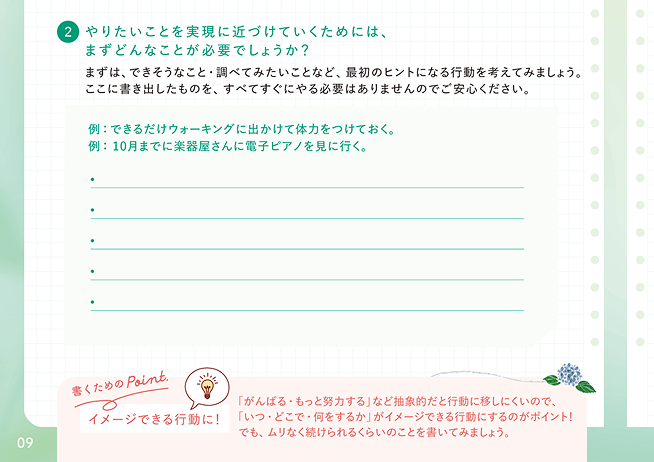 2 やりたいことを実現に近づけていくためには、
まずどんなことが必要でしょうか？
まずは、できそうなこと・調べてみたいことなど、最初のヒントになる行動を考えてみましょう。
ここに書き出したものを、すべてすぐにやる必要はありませんのでご安心ください。
例：できるだけウォーキングに出かけて体力をつけておく。
例：10月までに楽器屋さんに電子ピアノを見に行く。
書くためのPoint.
イメージできる行動に！
「がんばる・もっと努力する」など抽象的だと行動に移しにくいので、
「いつ・どこで・何をするか」がイメージできる行動にするのがポイント！
でも、ムリなく続けられるくらいのことを書いてみましょう。
09